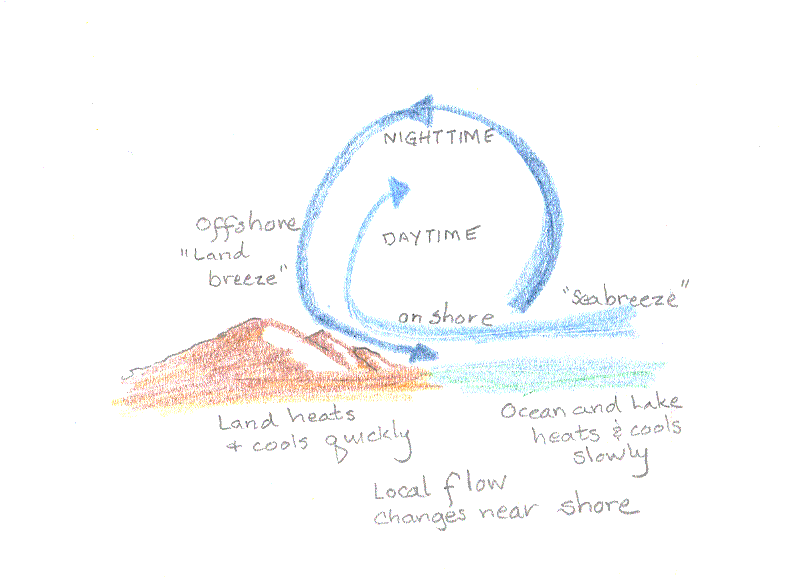 NIGHTTIME
Offshore
"Land
breeze"
DAYTIME
"Seabreeze"
on shore
Land heats
& cools quickly
Ocean and Lake
heats & cools
slowly
Local flow
changes near shore